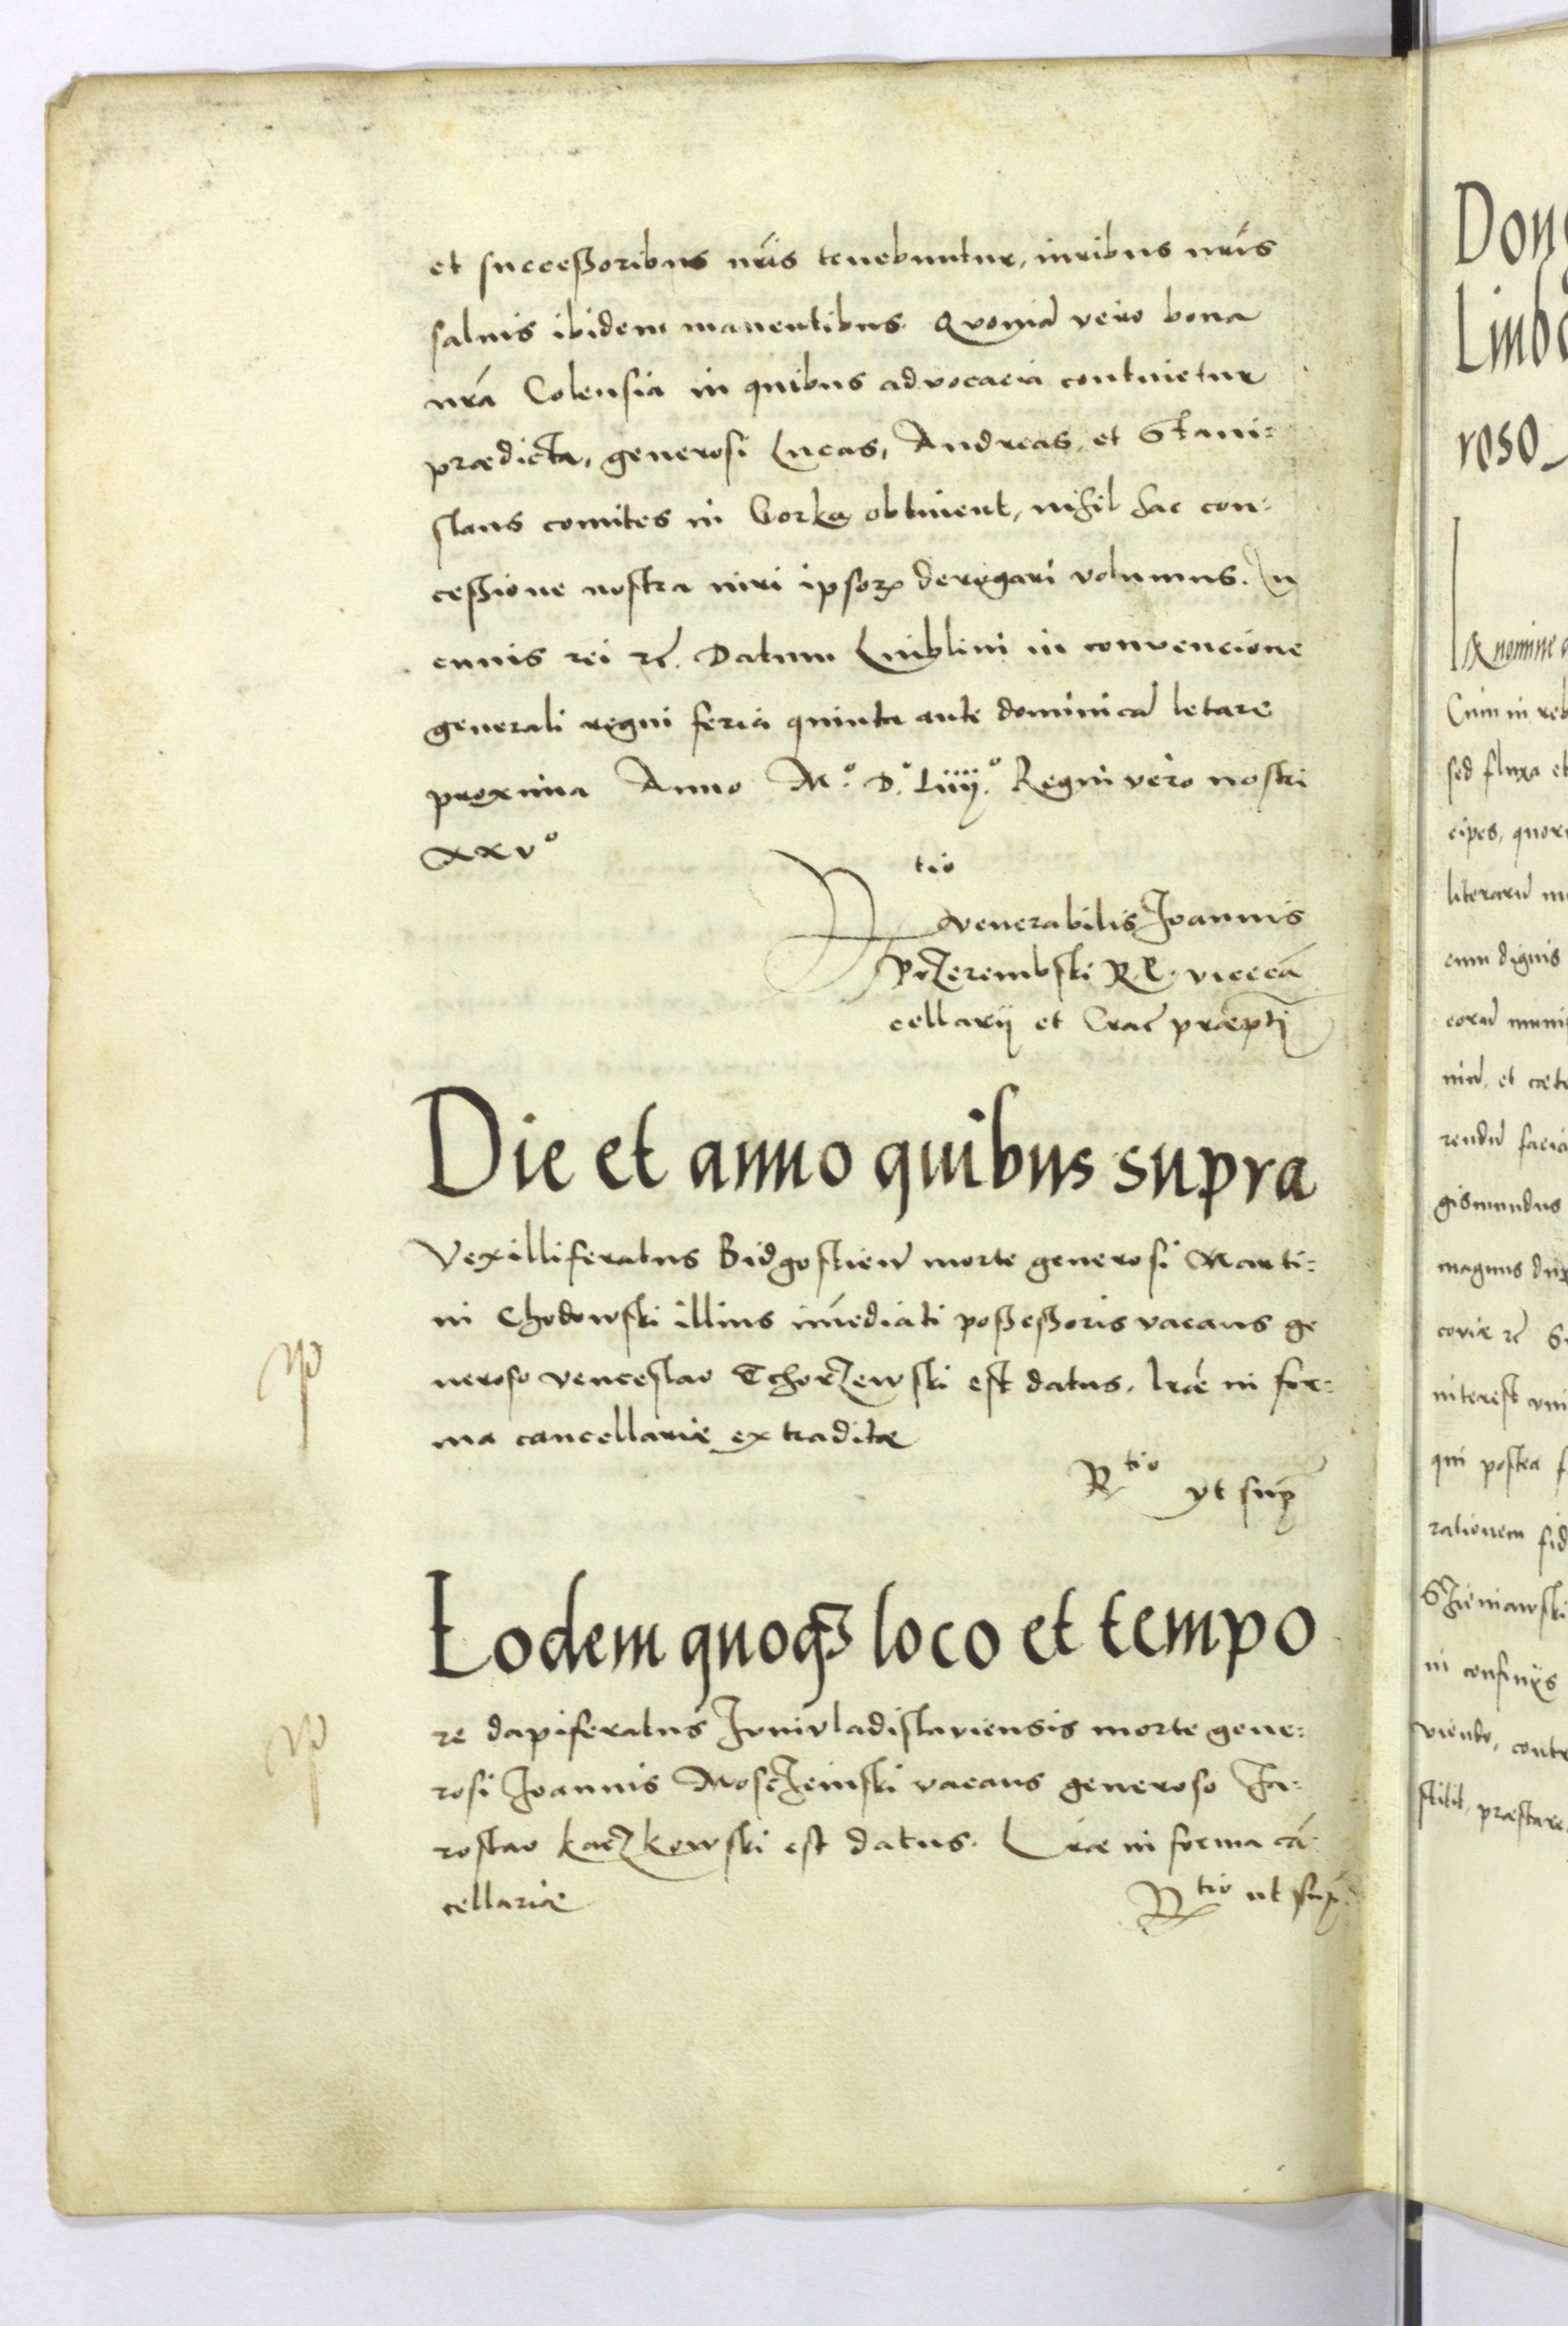 et successoribus nr̃is tenebuntur, iuribus nr̃is
saluis ibidem manentibus. Quoniã vero bona
nr̃a Colensia in quibus advocacia continetur
prædicta, generosi Lucas, Andreas, et Stani=
slaus comites in Gorka obtinent, nihil hac con=
cessione nostra iuri ipsorꝝ derogari volumus. In
cuuis rei rc̃. Datum Lublini in convencione
generali regni feria quinta ante dominicã letare
proxima Anno M.º D.º Liiij.º Regni vero nostri
XXVº
Rtio
venerabilis Joannis
Przerembski R. P. vicecã
cellarij et Crac̃ præpti
Die et anno quibus supra
Vexilliferatus Bidgostien̄ morte generosi Marti=
ni Chodowski illius im̃ediati possessoris vacans ge
neroso venceslao Tchorzewski est datus. lr̃æ in for=
ma cancellariæ extraditæ
Rtio vt sup̃
Eodem quoqȝ loco et tempo
re dapiferatus Junivladislaviensis morte gene=
rosi Joannis Mosczenski vacans generoso Ja=
roslao Kaczkowski est datus. Lr̃æ in forma cã
cellariæ
Rtio ut sup̃
Limb
roso
nomine
Cum in reb
sed fluxa et
cipes, quor
literarũ m
cum dignis
eorũ muni
niũ, et cæte
rendũ facia
gismundus
magnus dux
coviæ rc̃
interest
qui postea
rationem fid
Szieniawski
in confinijs
viendo, contr
stitit, præstare